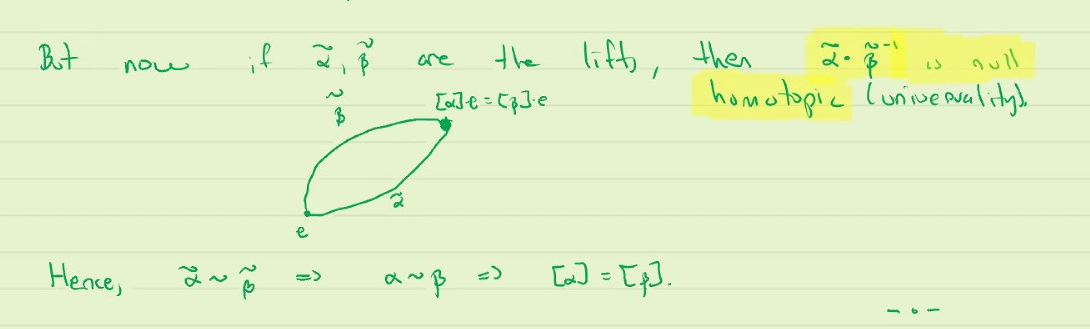 But now if α̃, β̃ are the lifts, then α̃·β̃⁻¹ is null
homotopic (universality).
β̃
[α]·e = [β]·e
α̃
e
Hence, α̃ ~ β̃ => α ~ β => [α] = [β].